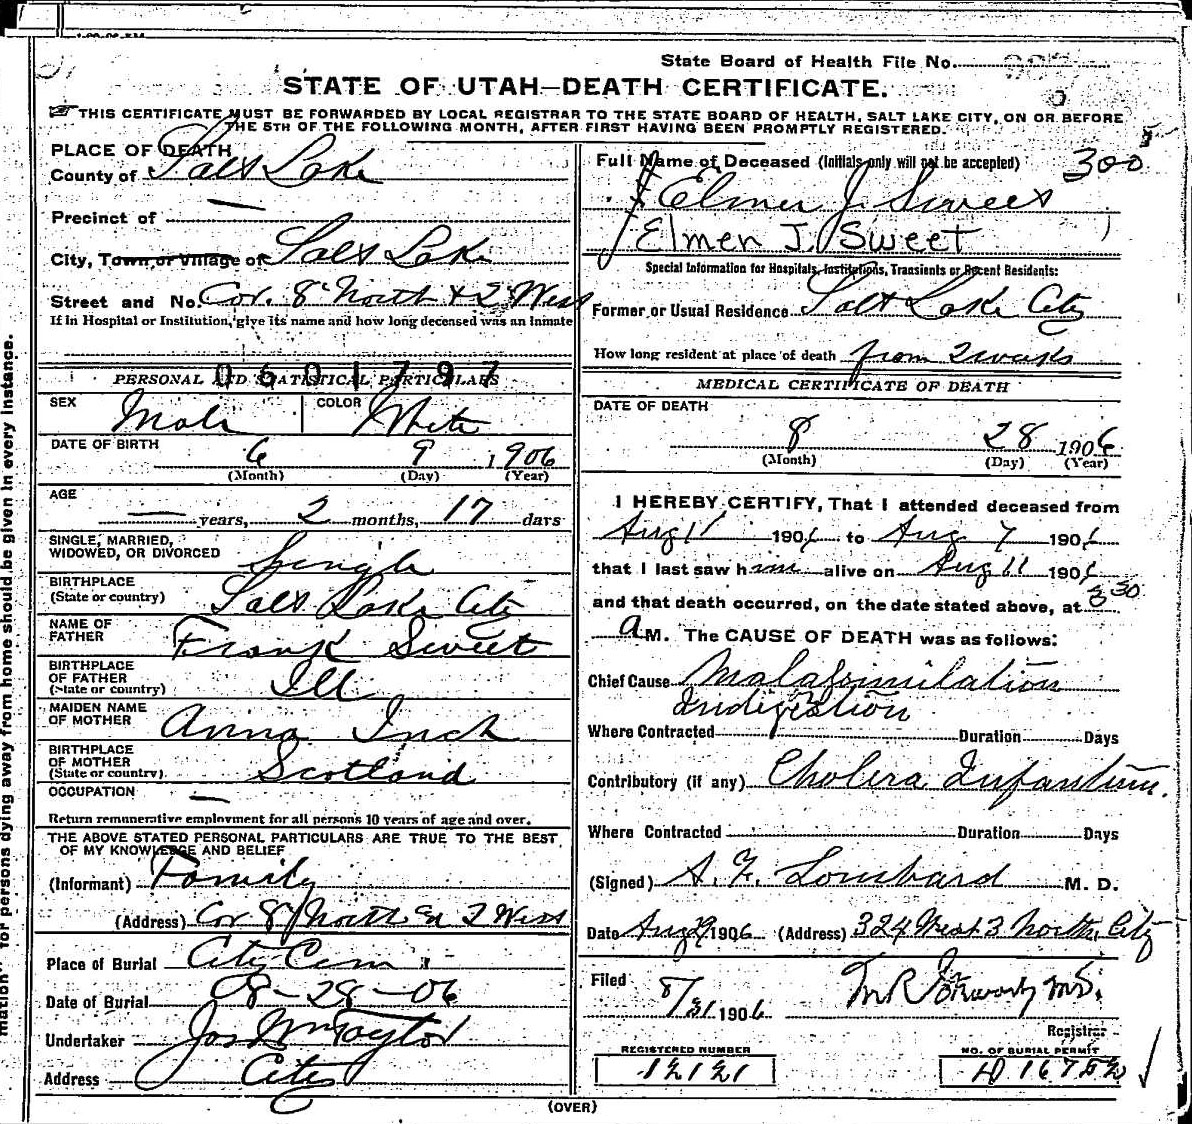 State Board of Health File No.
STATE OF UTAH—DEATH CERTIFICATE.
THIS CERTIFICATE MUST BE FORWARDED BY LOCAL REGISTRAR TO THE STATE BOARD OF HEALTH, SALT LAKE CITY, ON OR BEFORE
THE 5TH OF THE FOLLOWING MONTH, AFTER FIRST HAVING BEEN PROMPTLY REGISTERED.
PLACE OF DEATH
County of Salt Lake
Precinct of —
City, Town or Village of Salt Lake
Street and No. Cor. 8 North & 2 West
If in Hospital or Institution, give its name and how long deceased was an inmate
0601797
PERSONAL AND STATISTICAL PARTICULARS
SEX Male COLOR White
DATE OF BIRTH 6 9 1906
(Month) (Day) (Year)
AGE
— years, 2 months, 17 days
SINGLE, MARRIED,
WIDOWED, OR DIVORCED Single
BIRTHPLACE
(State or country) Salt Lake City
NAME OF
FATHER Frank Sweet
BIRTHPLACE
OF FATHER
(State or country) Ill
MAIDEN NAME
OF MOTHER Anna Inch
BIRTHPLACE
OF MOTHER
(State or country) Scotland
OCCUPATION —
Return remunerative employment for all persons 10 years of age and over.
THE ABOVE STATED PERSONAL PARTICULARS ARE TRUE TO THE BEST
OF MY KNOWLEDGE AND BELIEF
(Informant) Family
(Address) Cor 8 North & 2 West
Place of Burial City Cem
Date of Burial 08-28-06
Undertaker Jos Wm Taylor
Address City
Full Name of Deceased (Initials only will not be accepted) 300
Elmer J. Sweet
Elmer J. Sweet
Special Information for Hospitals, Institutions, Transients or Recent Residents:
Former or Usual Residence Salt Lake City
How long resident at place of death from 2 weeks
MEDICAL CERTIFICATE OF DEATH
DATE OF DEATH
8 28 1906
(Month) (Day) (Year)
I HEREBY CERTIFY, That I attended deceased from
Aug 11 1906 to Aug 7 1906
that I last saw him alive on Aug 11 1906
and that death occurred, on the date stated above, at 3 30
a M. The CAUSE OF DEATH was as follows:
Chief Cause Malassimilation
Indigestion
Where Contracted Duration Days
Contributory (if any) Cholera Infantum.
Where Contracted Duration Days
(Signed) A. F. Lombard M. D.
Date Aug 29 1906 (Address) 324 West 3 North, City
Filed
8/31 1906
Registrar
REGISTERED NUMBER NO. OF BURIAL PERMIT
12121
(OVER)
mation" for persons dying away from home should be given in every instance.